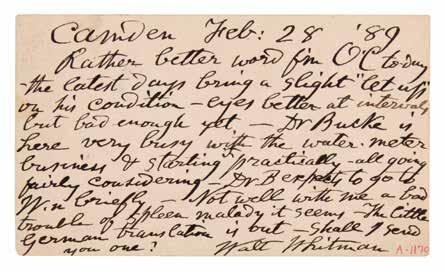 Camden Feb: 28 '89
Rather better word f'm O'C to-day
- the latest days bring a slight "let up"
on his condition - eyes better at intervals
but bad enough yet. - Dr Bucke is
here very busy with the water-meter
business & starting practically - all going
fairly considering - Dr B expects to go to
W. n briefly - Not well with me a bad
trouble of spleen malady it seems - The little
German translation is out - shall I send
you one? Walt Whitman
A-1170